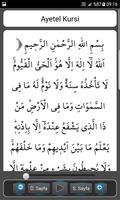 09:16
Ayetel Kursi
بِسْمِ اللّٰهِ الرَّحْمٰنِ الرَّحِيمِ
اَللّٰهُ لَا اِلٰهَ اِلَّا هُوَ الْحَيُّ الْقَيُّومُ
لَا تَأْخُذُهُ سِنَةٌ وَلَا نَوْمٌ لَهُ مَا فِي
السَّمٰوَاتِ وَمَا فِي الْاَرْضِ مَنْ
ذَا الَّذِي يَشْفَعُ عِنْدَهُ اِلَّا بِاِذْنِهِ
يَعْلَمُ مَا بَيْنَ اَيْدِيهِمْ وَمَا خَلْفَهُمْ
D. Sayfa
S. Sayfa